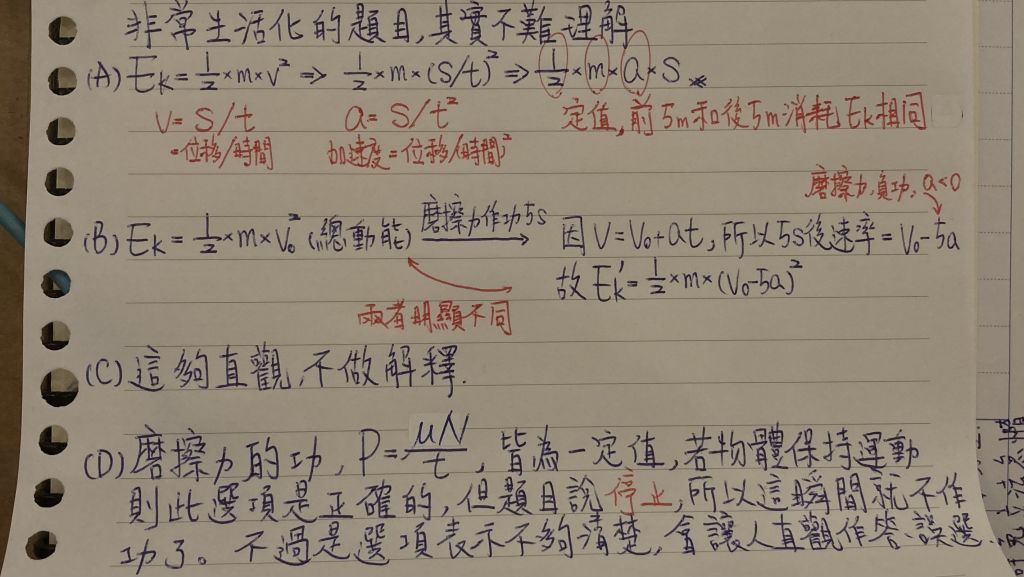 非常生活化的題目,其實不難理解
(A) Ek = 1/2 × m × v² ⇒ 1/2 × m × (S/t)² ⇒ 1/2 × m × a × S
V = S/t a = S/t² 定值,前5m和後5m消耗Ek相同
=位移/時間 加速度=位移/(時間)²
磨擦力,負功,a<0
(B) Ek = 1/2 × m × V₀² (總動能) 磨擦力作功5s 因V=V₀+at,所以5s後速率=V₀-5a
故Ek'=1/2×m×(V₀-5a)²
兩者明顯不同
(C) 這夠直觀,不做解釋.
(D) 磨擦力的功,P=μN/t,皆為一定值,若物體保持運動
則此選項是正確的,但題目說停止,所以這瞬間就不作
功了。不過是選項表示不夠清楚,會讓人直觀作答、誤選.